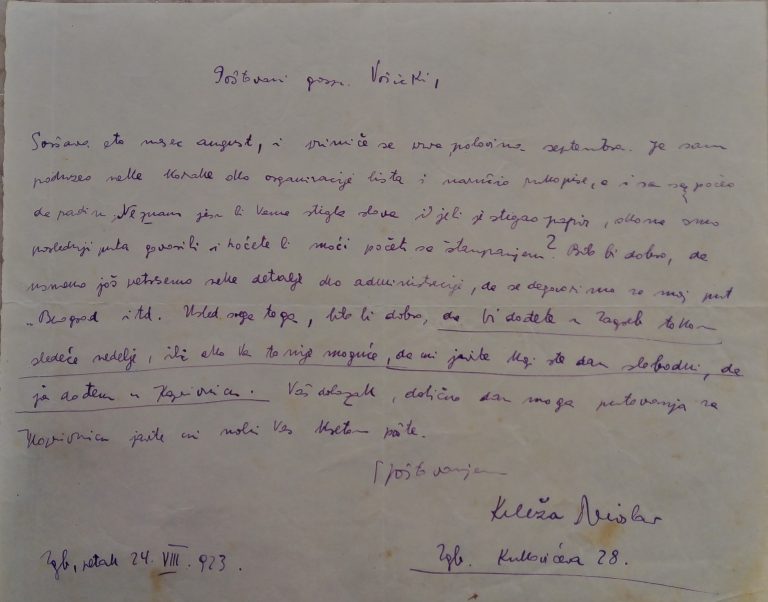 Poštovani gosp. Vošicki,
Svršava eto mesec august, i primiče se prva polovina septembra. Ja sam
poduzeo neke korake oko organizacije lista i naručio rukopise, a i sam počeo
da radim. Ne znam jesu li Vama stigla slova i jeli je stigao papir, o kome smo
poslednji puta govorili i hoćete li moći početi sa štampanjem? Bilo bi dobro, da
još pretresemo neke detalje oko administracije, da se dogovorimo za moj put
u Beograd itd. Usled svega toga, bilo bi dobro, da bi došli u Zagreb tokom
sledeće nedelje, ili ako Vam to nije moguće, da mi javite koji ste dan slobodni, da
ja dođem u Koprivnicu. Vaš dolazak, dotično dan moga putovanja za
Koprivnicu javite mi molim Vas kretom pošte.
S poštovanjem
Krleža Miroslav
Zgb, petak 24. VIII. 923.
Zgb. Kukovićeva 28.